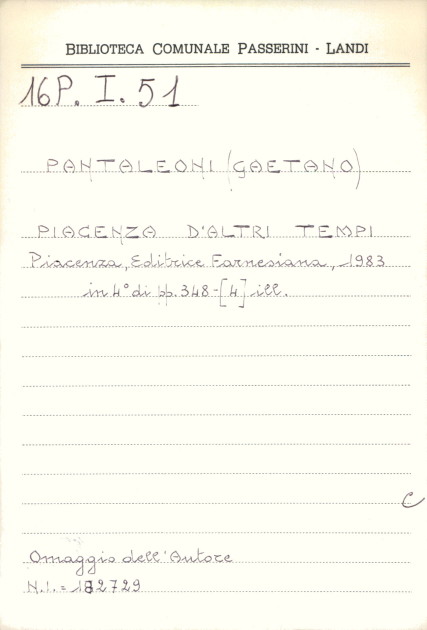 BIBLIOTECA COMUNALE PASSERINI - LANDI
16P. I. 51
PANTALEONI (GAETANO)
PIACENZA D'ALTRI TEMPI
Piacenza, Editrice Farnesiana, 1983
in 4° di pp. 348-[4] ill.
C
Omaggio dell'Autore
N.I. = 182729